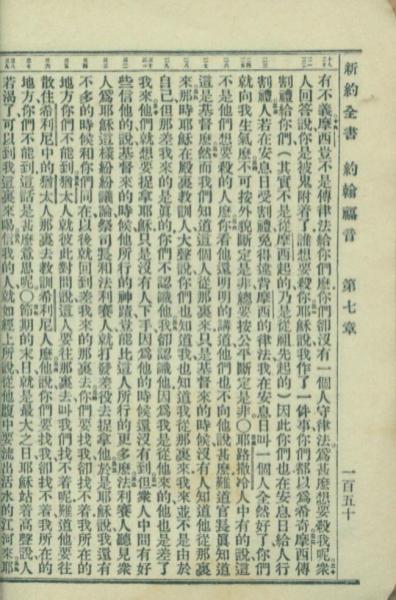 新約全書 約翰福音 第七章 一百五十
有不義摩西豈不是傳律法給你們麼你們卻沒有一個人守律法爲甚麼想要殺我呢衆
人回答說你是被鬼附着了誰想要殺你耶穌說我作了一件事你們都以爲希奇摩西傳
割禮給你們（其實不是從摩西起的乃是從祖先起的）因此你們也在安息日給人行
割禮人若在安息日受割禮免得違背摩西的律法我在安息日叫一個人全然好了你們
就向我生氣麼不可按外貌斷定是非總要按公平斷定是非〇耶路撒冷人中有的說這
不是他們想要殺的人麼你看他還明明的講道他們也不向他說甚麼難道官長眞知道
這是基督麼然而我們知道這個人從那裏來只是基督來的時候沒有人知道他從那裏
來那時耶穌在殿裏教訓人大聲說你們也知道我也知道我從那裏來我來並不是由於
自己但那差我來的是眞的你們不認識他我卻認識他因爲我是從他來的他也是差了
我來他們就想要捉拿耶穌只是沒有人下手因爲他的時候還沒有到但衆人中間有好
些信他的說基督來的時候他所行的神蹟豈能比這人所行的更多麼法利賽人聽見衆
人爲耶穌這樣紛紛議論祭司長和法利賽人就打發差役去捉拿他於是耶穌說我還有
不多的時候和你們同在以後就回到差我來的那裏去你們要找我卻找不着我所在的
地方你們不能到猶太人就彼此對問說這人要往那裏去叫我們找不着呢難道他要往
散住希利尼中的猶太人那裏去教訓希利尼人麼他說你們要找我卻找不着我所在的
地方你們不能到這話是甚麼意思呢〇節期的末日就是最大之日耶穌站着高聲說人
若渴了可以到我這裏來喝信我的人就如經上所說從他腹中要流出活水的江河來耶